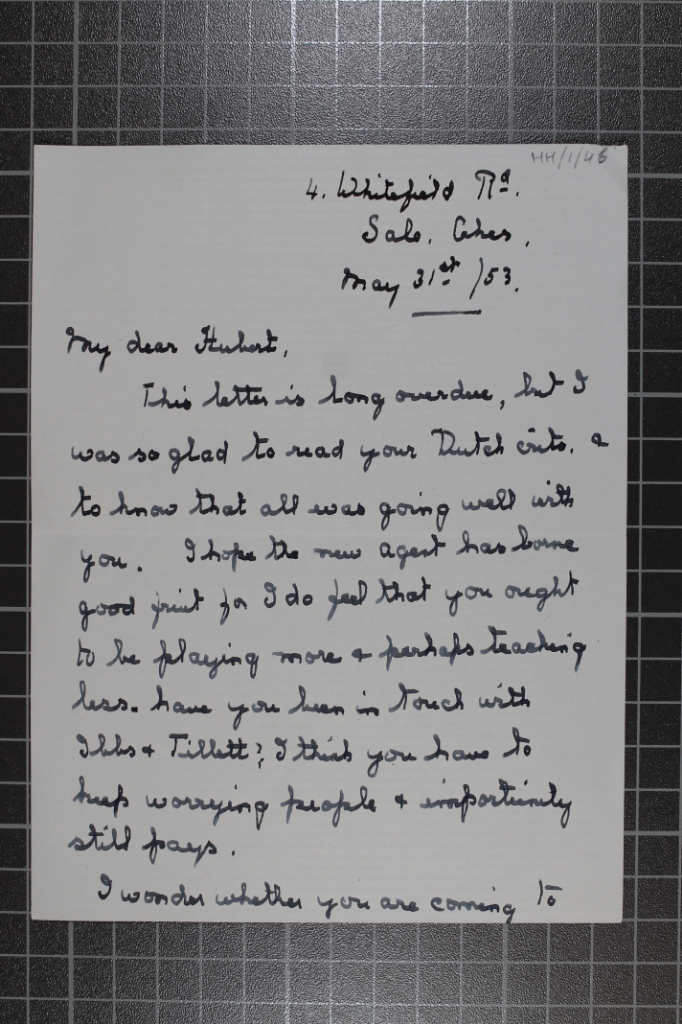 HH/1/46
4. Whitefield Rd.
Sale. Ches.
May 31st /53.
My dear Hubert,
This letter is long overdue, but I
was so glad to read your Dutch crits. &
to know that all was going well with
you. I hope the new agent has borne
good fruit for I do feel that you ought
to be playing more & perhaps teaching
less. have you been in touch with
Ibbs & Tillett? I think you have to
keep worrying people & importunity
still pays.
I wonder whether you are coming to